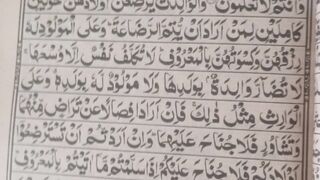 وَاَنْتُمْ لَا تَعْلَمُوْنَ وَالْوَالِدٰتُ يُرْضِعْنَ اَوْلَادَهُنَّ حَوْلَيْنِ
كَامِلَيْنِ لِمَنْ اَرَادَ اَنْ يُّتِمَّ الرَّضَاعَةَ ؕ وَعَلَى الْمَوْلُوْدِ لَهٗ
رِزْقُهُنَّ وَكِسْوَتُهُنَّ بِالْمَعْرُوْفِ ؕ لَا تُكَلَّفُ نَفْسٌ اِلَّا وُسْعَهَا ۚ
لَا تُضَآرَّ وَالِدَةٌۢ بِوَلَدِهَا وَلَا مَوْلُوْدٌ لَّهٗ بِوَلَدِهٖ وَعَلَى
الْوَارِثِ مِثْلُ ذٰلِكَ ۚ فَاِنْ اَرَادَا فِصَالًا عَنْ تَرَاضٍ مِّنْهُمَا
وَتَشَاوُرٍ فَلَا جُنَاحَ عَلَيْهِمَا ؕ وَاِنْ اَرَدْتُّمْ اَنْ تَسْتَرْضِعُوْٓا
اَوْلَادَكُمْ فَلَا جُنَاحَ عَلَيْكُمْ اِذَا سَلَّمْتُمْ مَّآ اٰتَيْتُمْ بِالْمَعْرُوْفِ